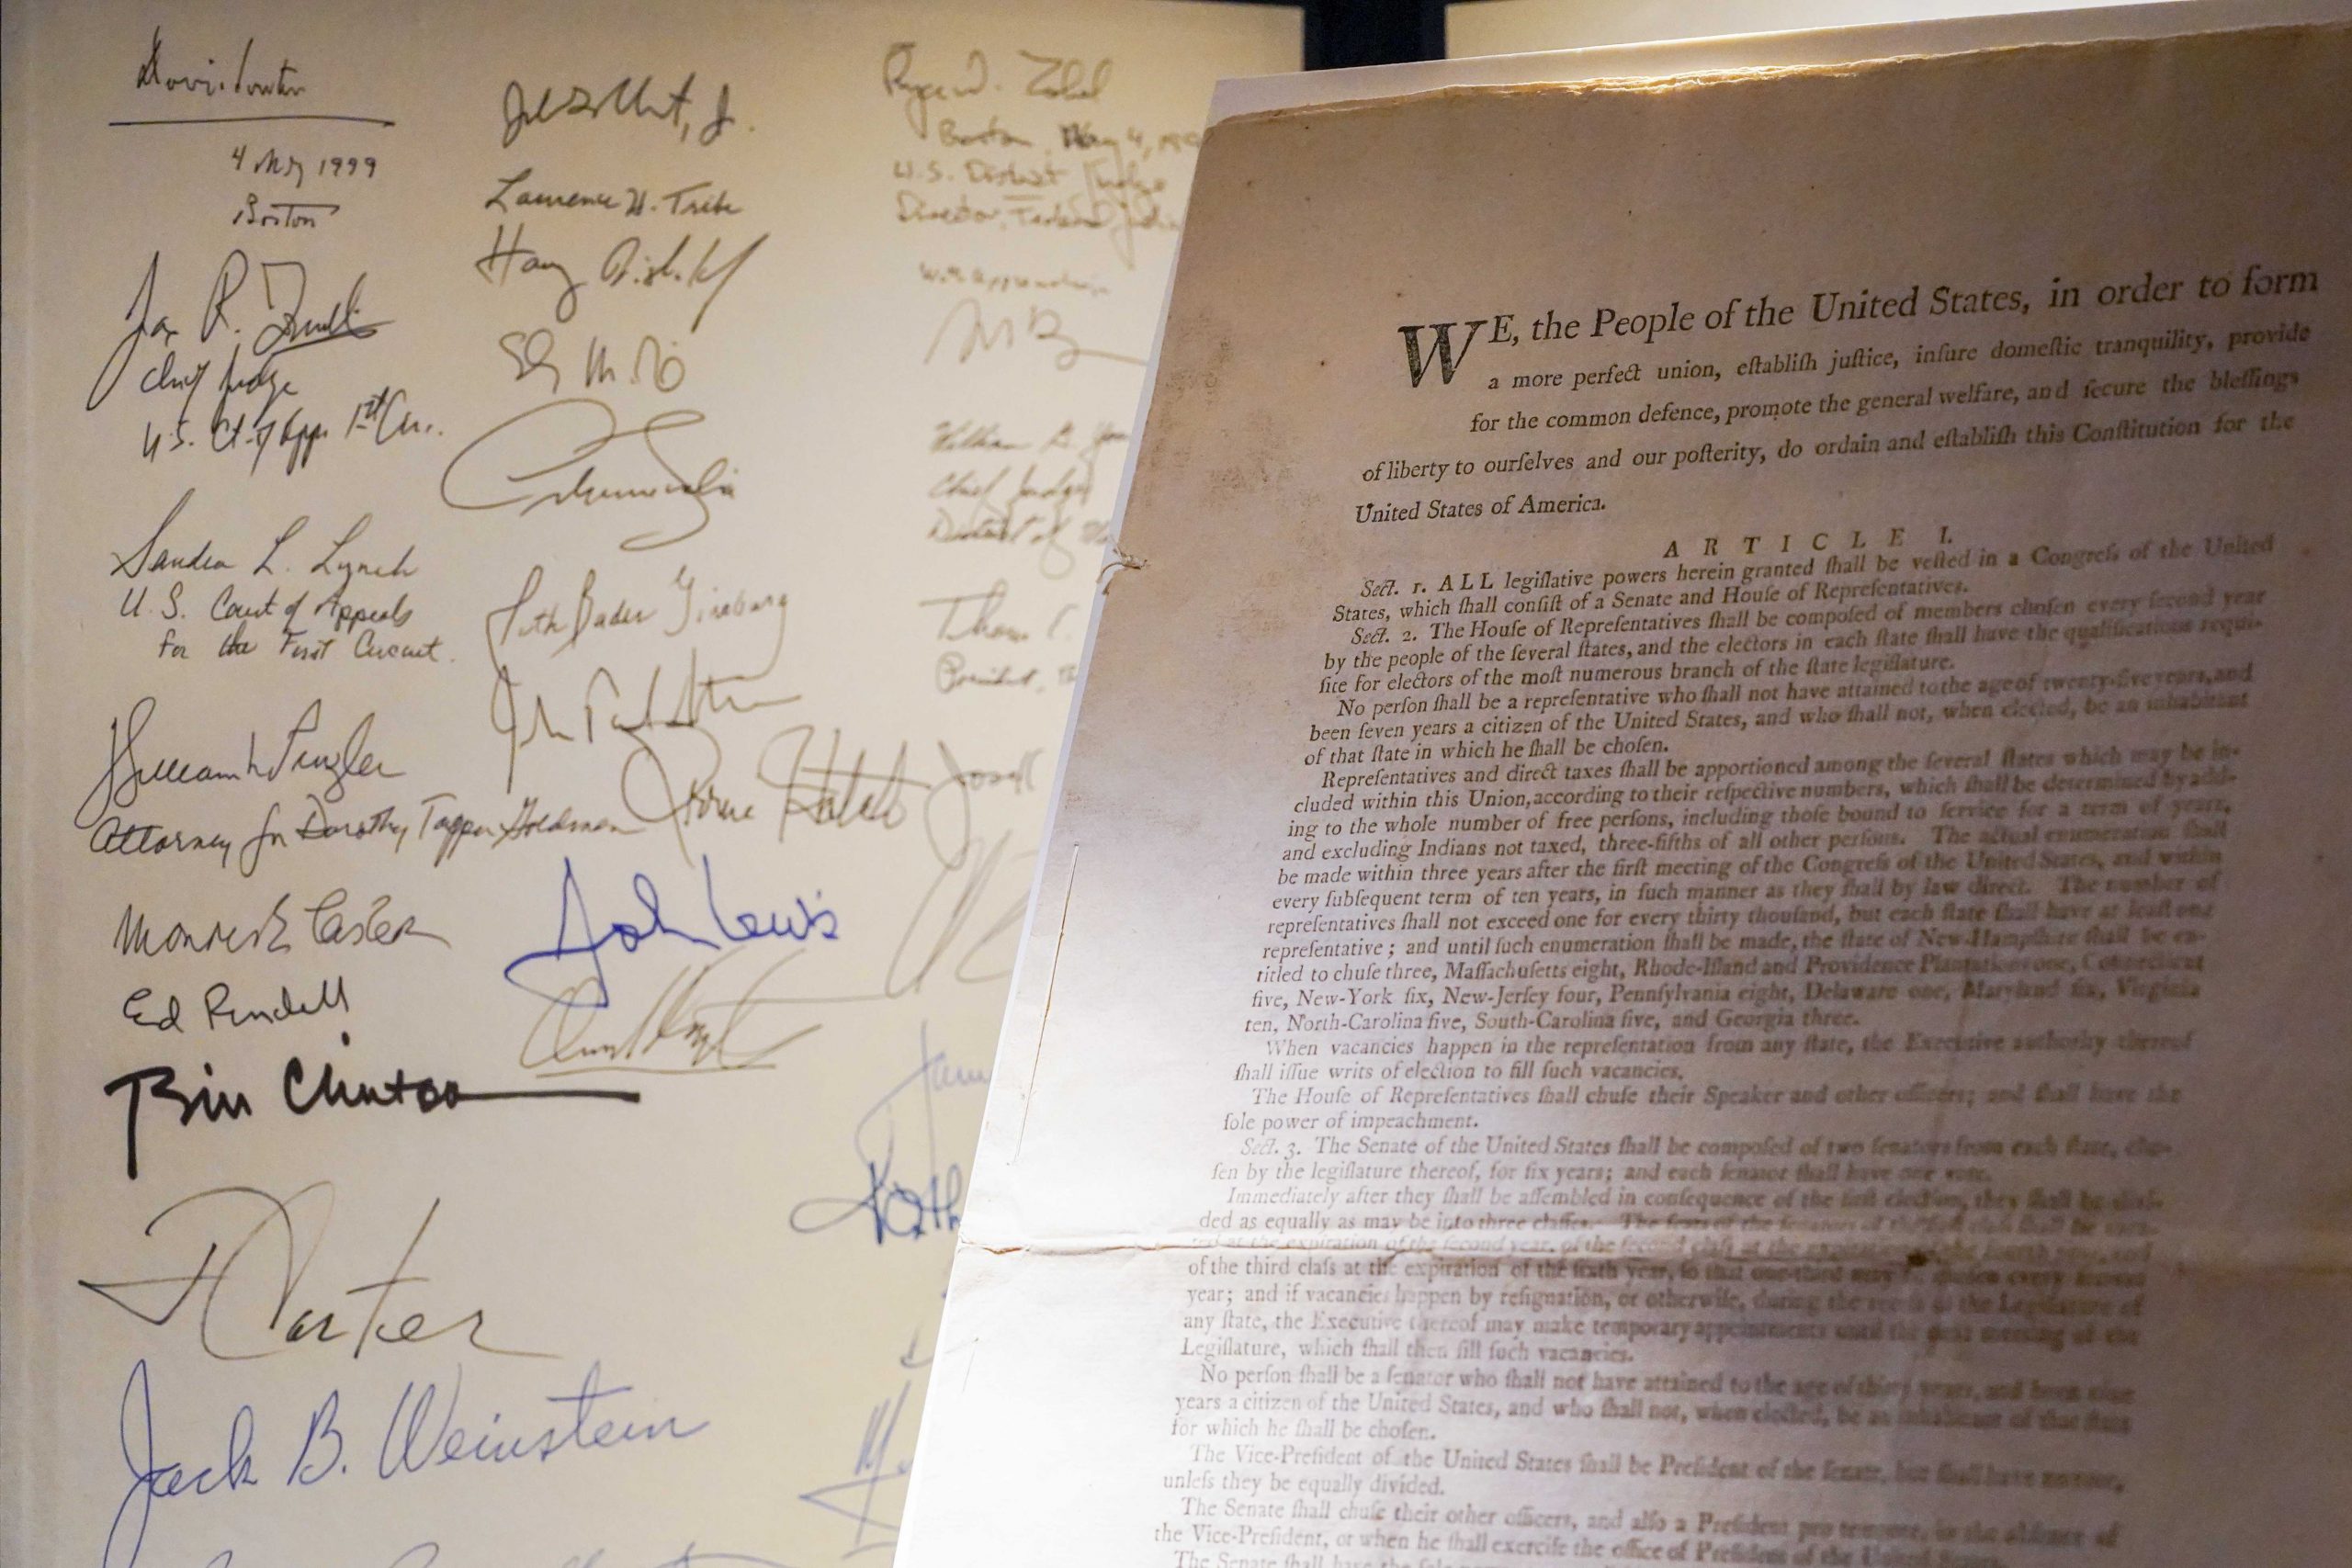 4 May 1999
Boston
Chief Judge
U.S. Ct. of App. 1st Cir.
Sandra L. Lynch
U. S. Court of Appeals
for the First Circuit.
Attorney for Dorothy Tapper Goldman
Ed Rendell
Bill Clinton
J Carter
Jack B. Weinstein
Laurence H. Tribe
Ruth Bader Ginsburg
John Paul Stevens
John Lewis
Zobel
Boston, May 4,
U.S. District Judge
Director, Federal
William G.
Chief Judge
District of
President,
WE, the People of the United States, in order to form
a more perfect union, eſtabliſh juſtice, inſure domeſtic tranquility, provide
for the common defence, promote the general welfare, and ſecure the bleſſings
of liberty to ourſelves and our poſterity, do ordain and eſtabliſh this Conſtitution for the
United States of America.
ARTICLE I.
Sect. 1. ALL legiſlative powers herein granted ſhall be veſted in a Congreſs of the United
States, which ſhall conſiſt of a Senate and Houſe of Repreſentatives.
Sect. 2. The Houſe of Repreſentatives ſhall be compoſed of members choſen every ſecond year
by the people of the ſeveral ſtates, and the electors in each ſtate ſhall have the qualifications requi-
ſite for electors of the moſt numerous branch of the ſtate legiſlature.
No perſon ſhall be a repreſentative who ſhall not have attained to the age of twenty-five years, and
been ſeven years a citizen of the United States, and who ſhall not, when elected, be an inhabitant
of that ſtate in which he ſhall be choſen.
Repreſentatives and direct taxes ſhall be apportioned among the ſeveral ſtates which may be in-
cluded within this Union, according to their reſpective numbers, which ſhall be determined by add-
ing to the whole number of free perſons, including thoſe bound to ſervice for a term of years,
and excluding Indians not taxed, three-fifths of all other perſons. The actual enumeration ſhall
be made within three years after the firſt meeting of the Congreſs of the United States, and within
every ſubſequent term of ten years, in ſuch manner as they ſhall by law direct. The number of
repreſentatives ſhall not exceed one for every thirty thouſand, but each ſtate ſhall have at leaſt one
repreſentative ; and until ſuch enumeration ſhall be made, the ſtate of New-Hampſhire ſhall be en-
titled to chuſe three, Maſſachuſetts eight, Rhode-Iſland and Providence Plantations one, Connecticut
five, New-York ſix, New-Jerſey four, Pennſylvania eight, Delaware one, Maryland ſix, Virginia
ten, North-Carolina five, South-Carolina five, and Georgia three.
When vacancies happen in the repreſentation from any ſtate, the Executive authority thereof
ſhall iſſue writs of election to fill ſuch vacancies.
The Houſe of Repreſentatives ſhall chuſe their Speaker and other officers; and ſhall have the
ſole power of impeachment.
Sect. 3. The Senate of the United States ſhall be compoſed of two ſenators from each ſtate, cho-
ſen by the legiſlature thereof, for ſix years; and each ſenator ſhall have one vote.
Immediately after they ſhall be aſſembled in conſequence of the firſt election, they ſhall be divi-
ded as equally as may be into three claſſes. The ſeats of the ſenators of the firſt claſs ſhall be vaca-
ted at the expiration of the ſecond year, of the ſecond claſs at the expiration of the fourth year, and
of the third claſs at the expiration of the ſixth year, ſo that one-third may be choſen every ſecond
year; and if vacancies happen by reſignation, or otherwiſe, during the receſs of the Legiſlature of
any ſtate, the Executive thereof may make temporary appointments until the next meeting of the
Legiſlature, which ſhall then fill ſuch vacancies.
No perſon ſhall be a ſenator who ſhall not have attained to the age of thirty years, and been nine
years a citizen of the United States, and who ſhall not, when elected, be an inhabitant of that ſtate
for which he ſhall be choſen.
The Vice-Preſident of the United States ſhall be Preſident of the ſenate, but ſhall have no vote,
unleſs they be equally divided.
The Senate ſhall chuſe their other officers, and alſo a Preſident pro tempore, in the abſence of
the Vice-Preſident, or when he ſhall exerciſe the office of Preſident of the United States.
The Senate ſhall have the ſole